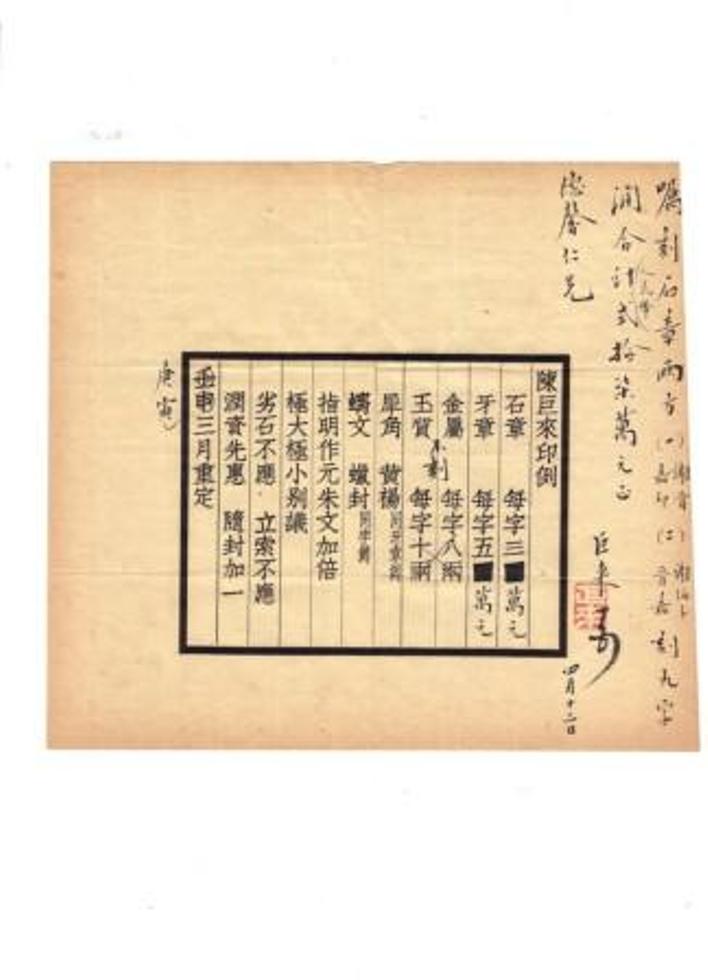 囑刻石章兩方
刻九字
潤合計弍拾柒萬元正
德馨仁兄
巨來
四月十二日
陳巨來印例
石章 每字三 萬元
牙章 每字五 萬元
金屬 每字八兩
玉質 每字十兩
不刻
犀角 黃楊同牙章例
蠟封
指明作元朱文加倍
極大極小別議
劣石不應 立索不應
潤資先惠 隨封加一
壬申三月重定
庚寅